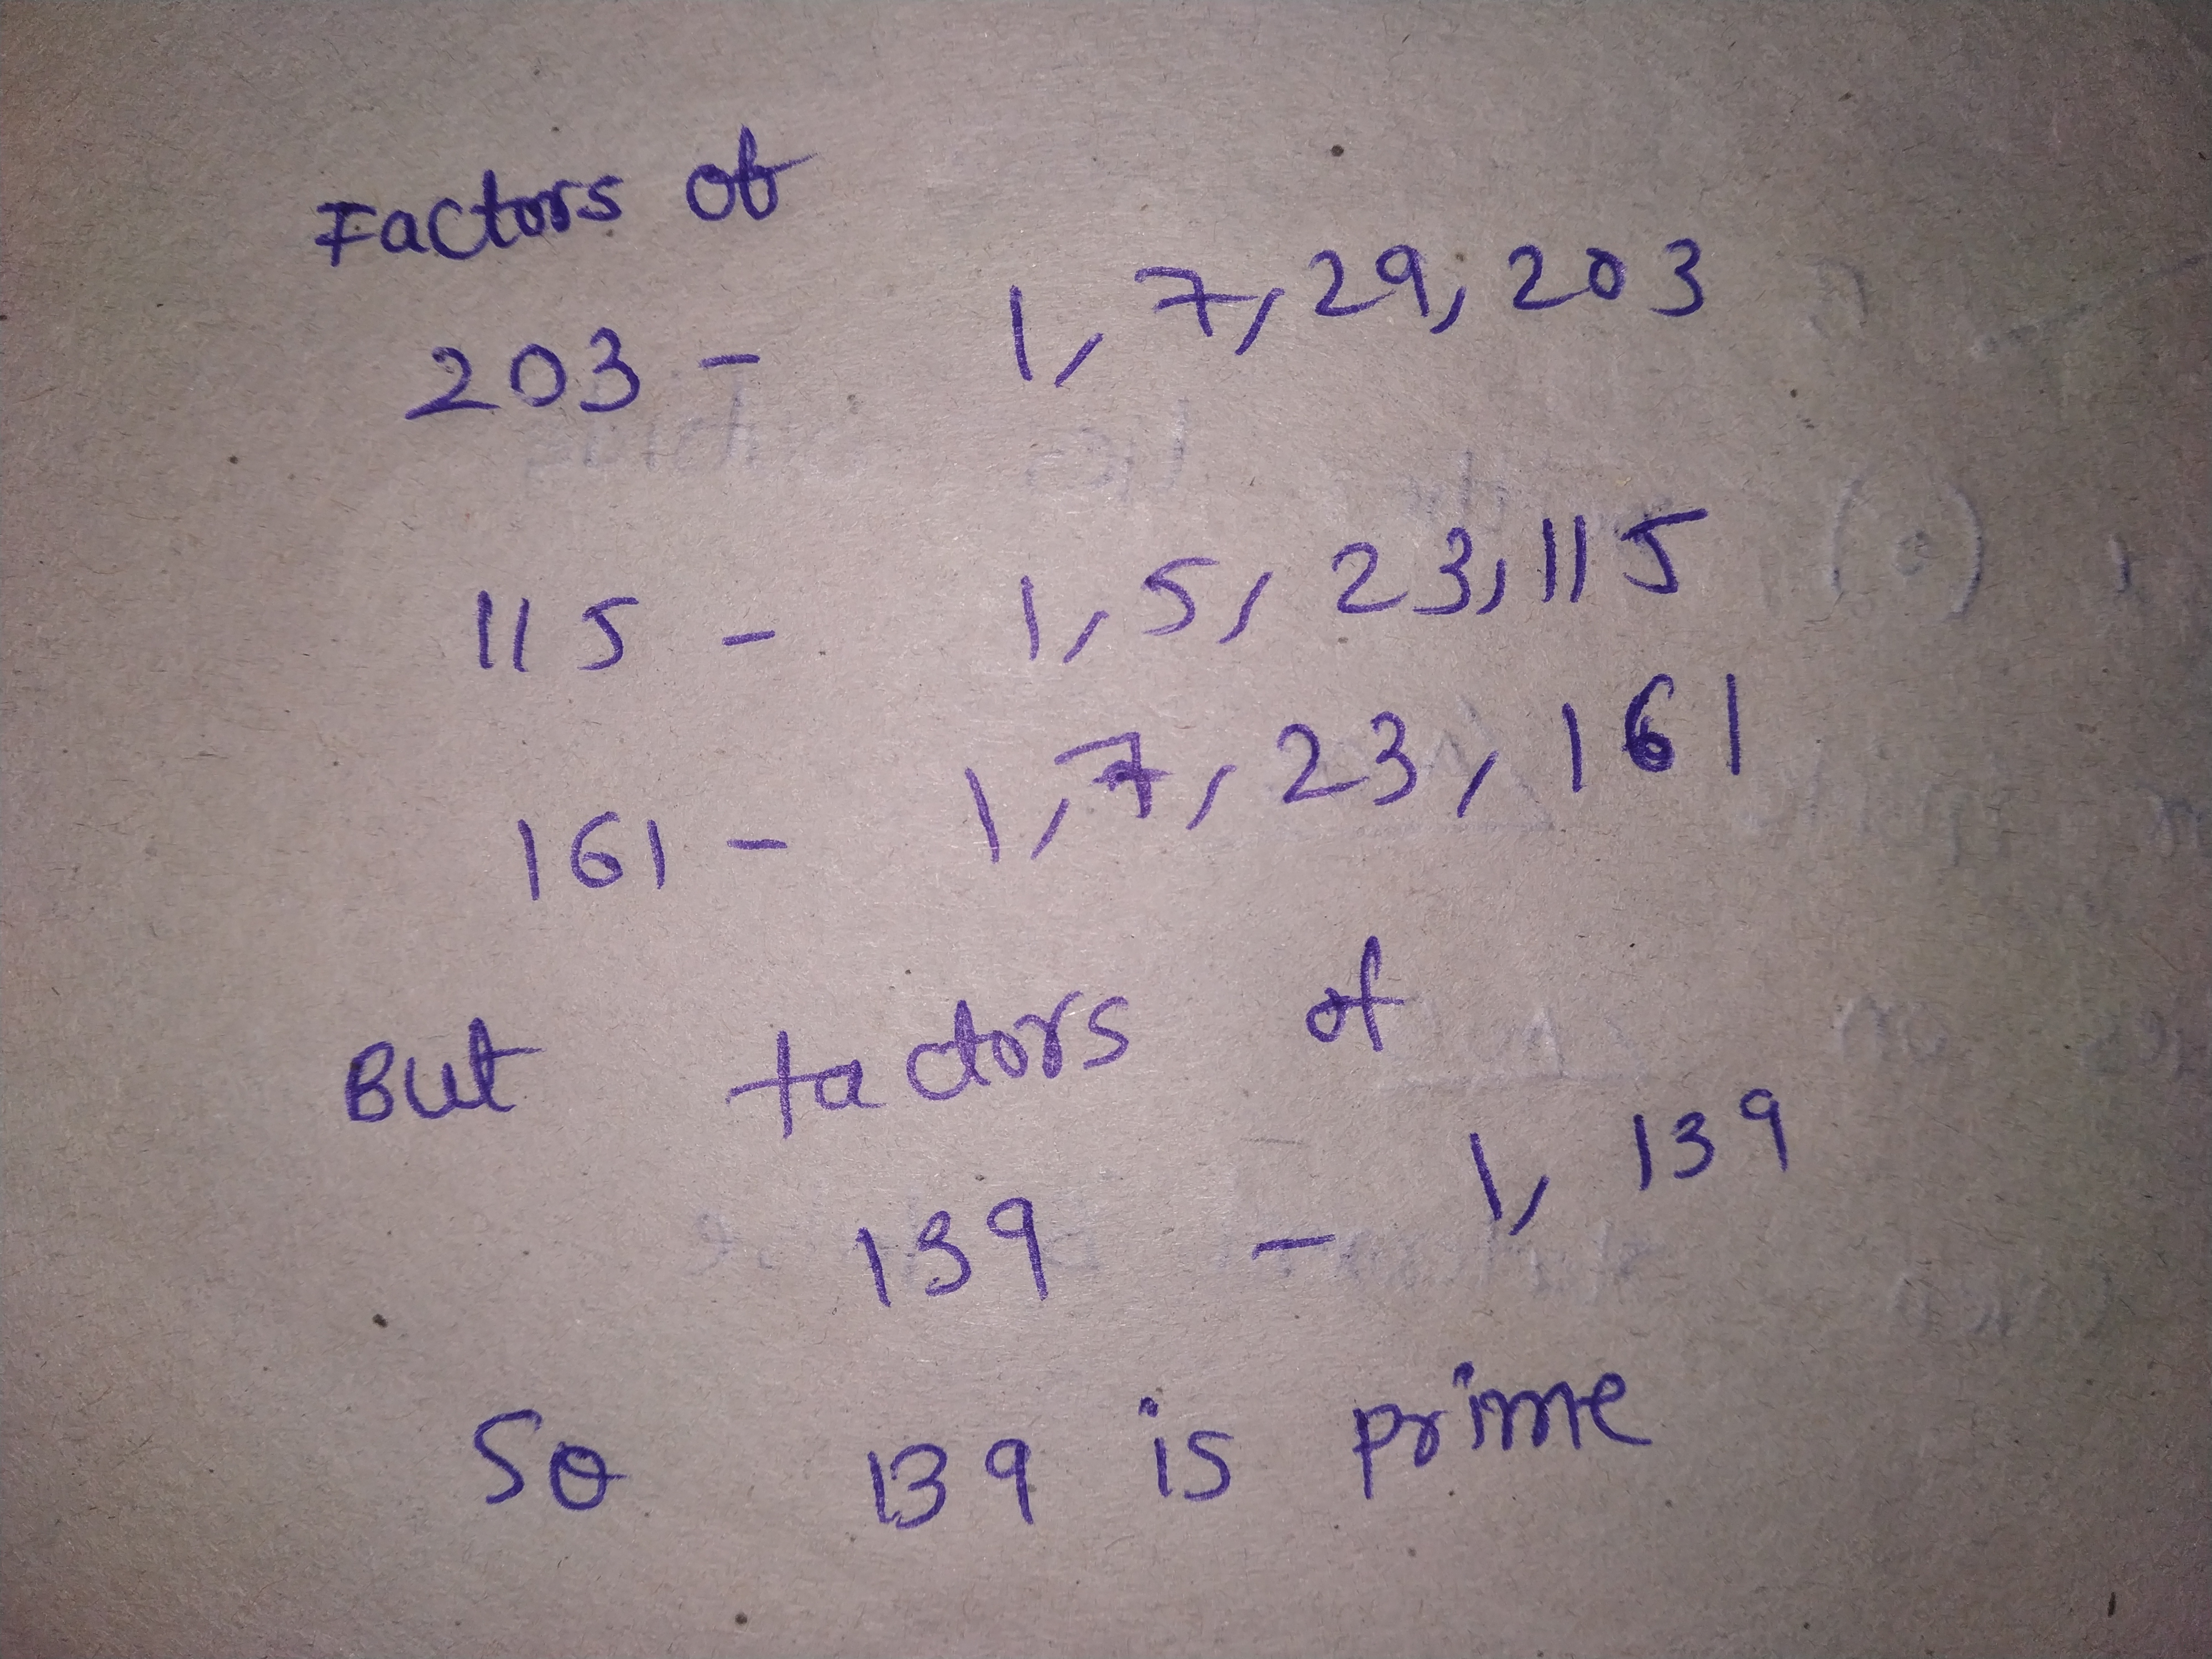 Factors of
203 - 1, 7, 29, 203
115 - 1, 5, 23, 115
161 - 1, 7, 23, 161
But factors of
139 - 1, 139
So 139 is prime